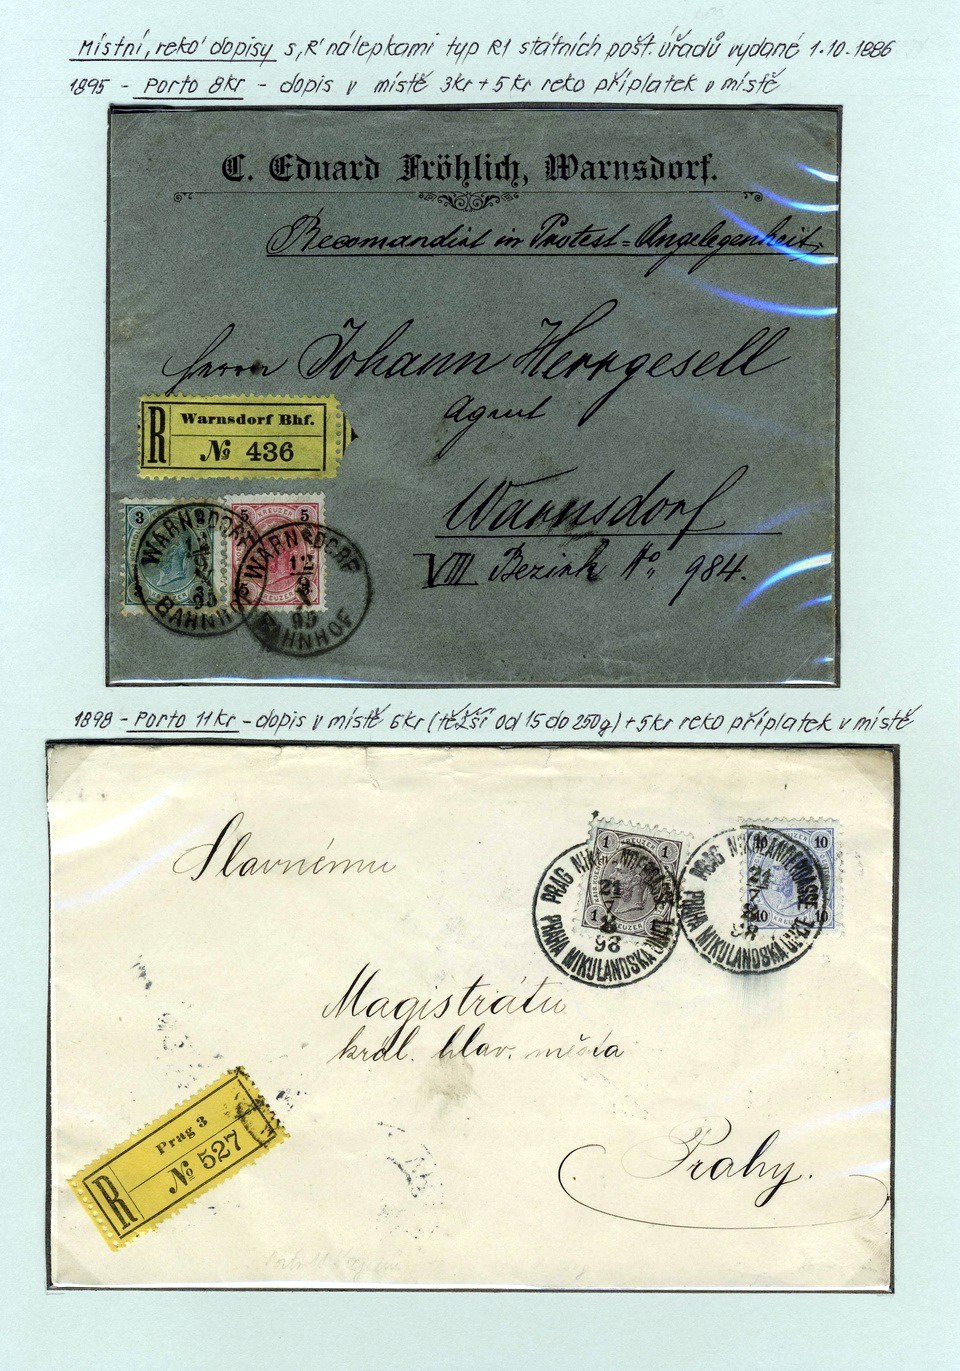 Místní, reko' dopisy s,R' nálepkami typ R1 státních pošt. úřadů vydané 1.10.1886
1895 - Porto 8kr - dopis v místě 3kr + 5kr reko příplatek v místě
C. Eduard Fröhlich, Warnsdorf.
Recomandirt in Protest=Angelegenheit,
Herrn Johann Herrgesell
Agent
R Warnsdorf Bhf.
№ 436
Warnsdorf
VIII Bezirk No 984.
3
5 KREUZER 5
5 KREUZER
WARNSDORF
BAHNHOF
95
WARNSDORF
12
9
95
BAHNHOF
1898 - Porto 11kr - dopis v místě 6kr (těžší od 15 do 250g) + 5kr reko příplatek v místě
Slavnému
1 1
1 KREUZER 1
10 10
10 KREUZER 10
PRAG NIKLANDERGASSE
21
7
8
98
PRAHA MIKULANDSKÁ ULICE
PRAG NIKLANDERGASSE
21
98
PRAHA MIKULANDSKÁ ULICE
Magistrátu
král. hlav. města
Prahy.
R Prag 3
№ 527